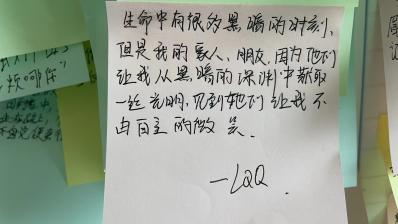 生命中有很多黑暗的时刻,
但是我的家人、朋友,因为他们
让我从黑暗的深渊中获取
一丝光明,见到她们让我不
由自主的微笑.
—LQQ.
烦哪你"